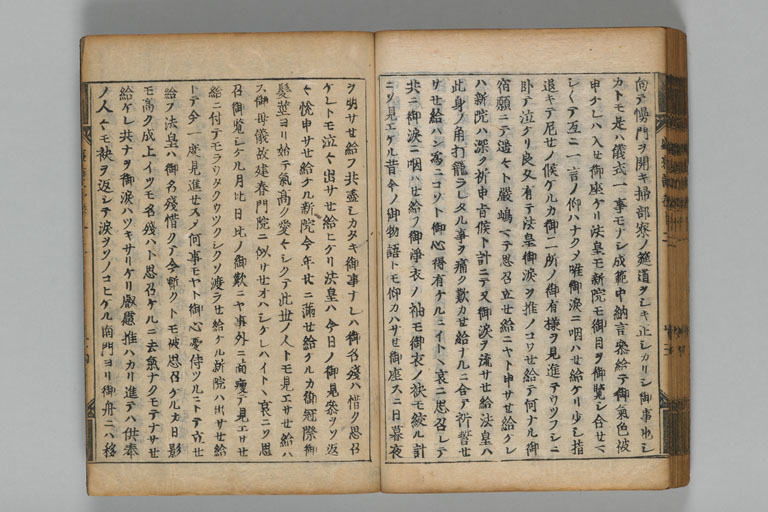 向テ慢門ヲ開キ掃部寮ノ筵道ヲシキ正シカリシ御事也シ
カトモ是ハ儀式一事モナシ成範中納言参給テ御氣色被
申ケレハ入セ御座ケリ法皇モ新院モ御目ヲ御覽シ合セテ
シクテ互ニ一言ノ仰ハナクメ唯御涙ニ咽ハせ給ケリ少シ指
退キテ尼せノ候ケルカ御一所ノ御有様ヲ見進テウツフシニ
卧テ泣ケリ良久有テ法皇御涙ヲ推ノコワせ給テ何ナル御
宿願ニテ遥々ト嚴嶋マテ思召立せ給ニヤト申サせ給ケレ
ハ新院ハ深ク祈申旨候ト計ニテ又御涙ヲ流サせ給法皇ハ
此身ノ角打籠ラレタル事ヲ痛ク歎カせ給ナルニ合テ祈誓せ
サせ給ハン為ニコソト御心得有ケルニイトヽ哀ニ思召レテ
共ニ御涙ニ咽ハせ給フ御淨衣ノ袖モ御衣ノ袂モ絞ル計
ニソ見エケル昔今ノ御物語トモ仰カハサせ御座スニ日暮夜
ヲ明サせ給フ共盡シカタキ御事ナレハ御名殘ハ惜ク思召
ケレトモ泣々出サせ給ヒケリ法皇ハ今日ノ御見参ヲソ返
々悦申サせ給ケル新院今年廿ニ滿せ給ケルカ御冠際御
髪莖ヨリ始テ氣高ク愛々シクテ此世ノ人トモ見エサせ給ハ
ス御母儀故建春門院ニ似サせオハシケレハイトヽ哀ニソ思
召御覽シケル月比日比ノ御歎ニヤ事外ニ面痩テ見エサせ
給ニ付テモラウタクウツクシクソ渡ラせ給ケル新院ハ出サせ給
トテ今一度見進せスメ何事モヤト御心憂侍ツルニトテ立せ
給フ法皇ハ御名殘惜クテ今暫クトモ被思召ケルカ日影
モ高ク成上イツモ名殘ハト思召ケルニ去氣ナクモテナサせ
給ケレ共ナヲ御涙ハツキサリケリ嚴慇推ハカリ進テハ供奉
ノ人々モ袂ヲ返シテ涙ヲソノコヒケル南門ヨリ御舟ニハ移